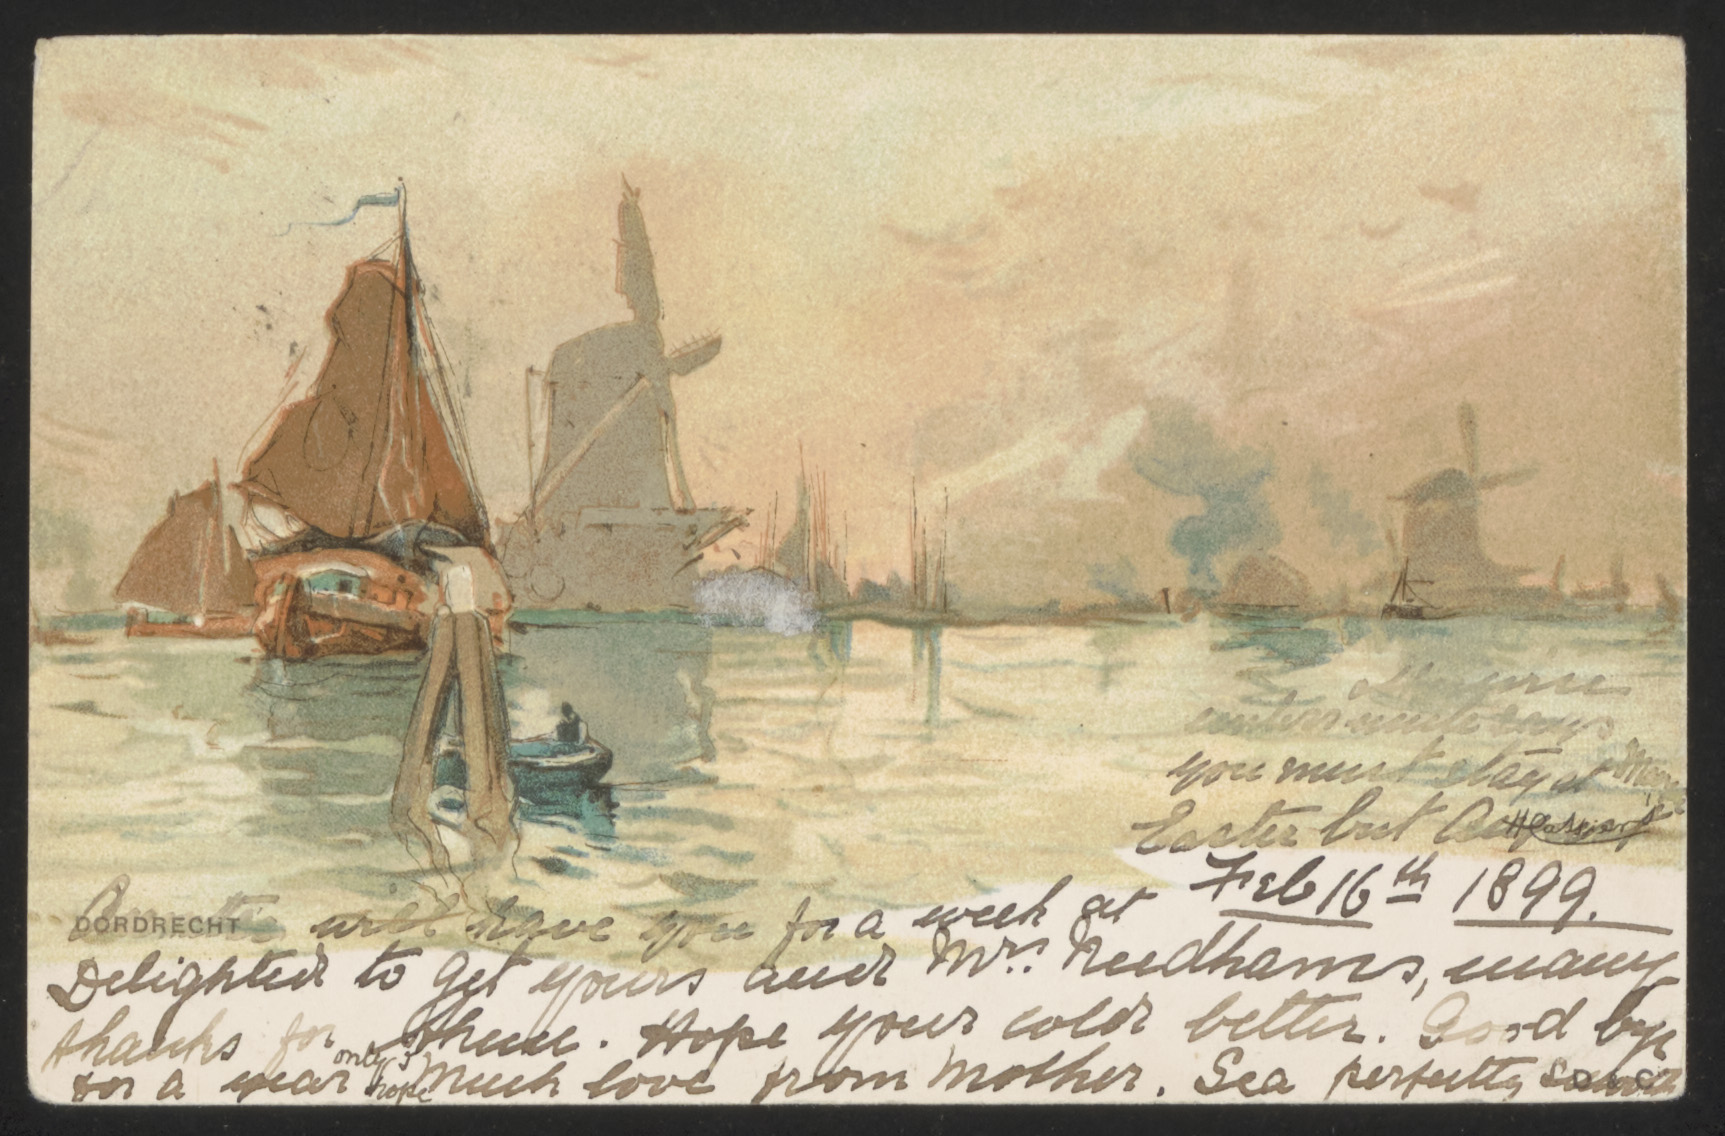 you must stay at
Easter but
H Cassiers
Feb 16th 1899.
DORDRECHT
will have you for a week at
Delighted to get yours and Mrs. Needhams, many
thanks for them. Hope your cold better. Good bye
for a year only I hope Much love from Mother. Sea perfectly smooth